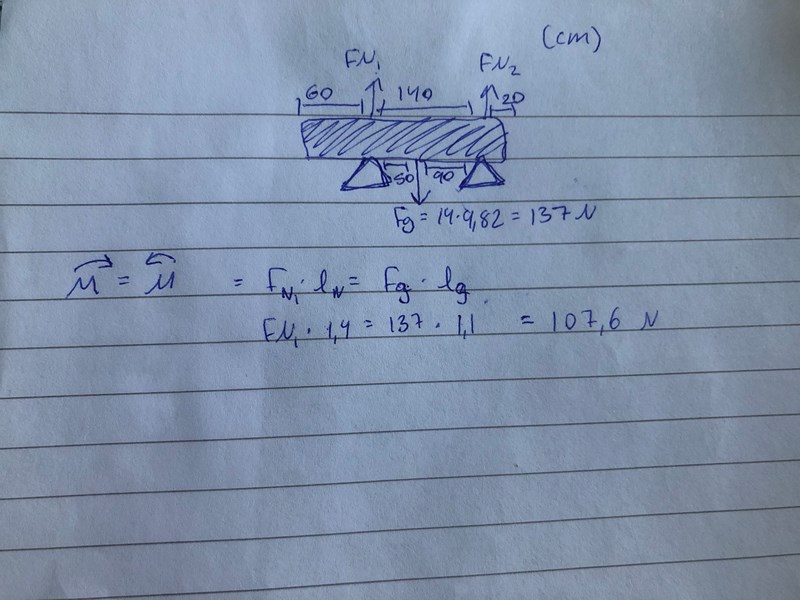 (cm)
FN₁ FN₂
60 140 20
50 90
Fg = 14·9,82 = 137 N
M = M = FN₁ · lN = Fg · lg
FN₁ · 1,4 = 137 · 1,1 = 107,6 N